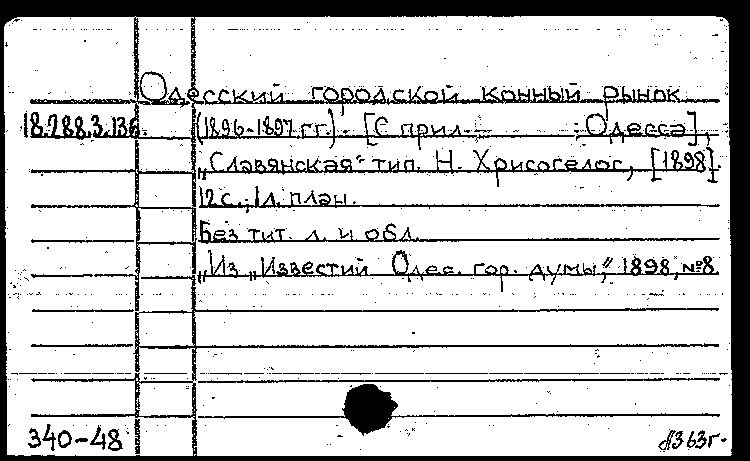 Одесский городской конный рынок
18.288.3.136. (1896-1897 гг.). [С прил. ; Одесса],
„Славянская" тип. Н. Хрисогелос, [1898].
12 с.; 1 л. план.
Без тит. л. и обл.
„Из „Известий Одес. гор. думы," 1898, №8.
340-48